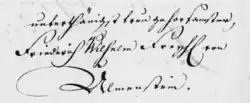 unterthänigst treu gehorsamster,
Friederich Wilhelm Freyh. von
Ulmenstein.